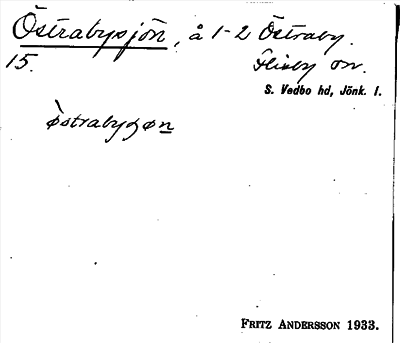 Östrabysjön, å 1-2 Östraby.
15. Flisby sn.
S. Vedbo hd, Jönk. l.
östrabyȿøn
FRITZ ANDERSSON 1933.